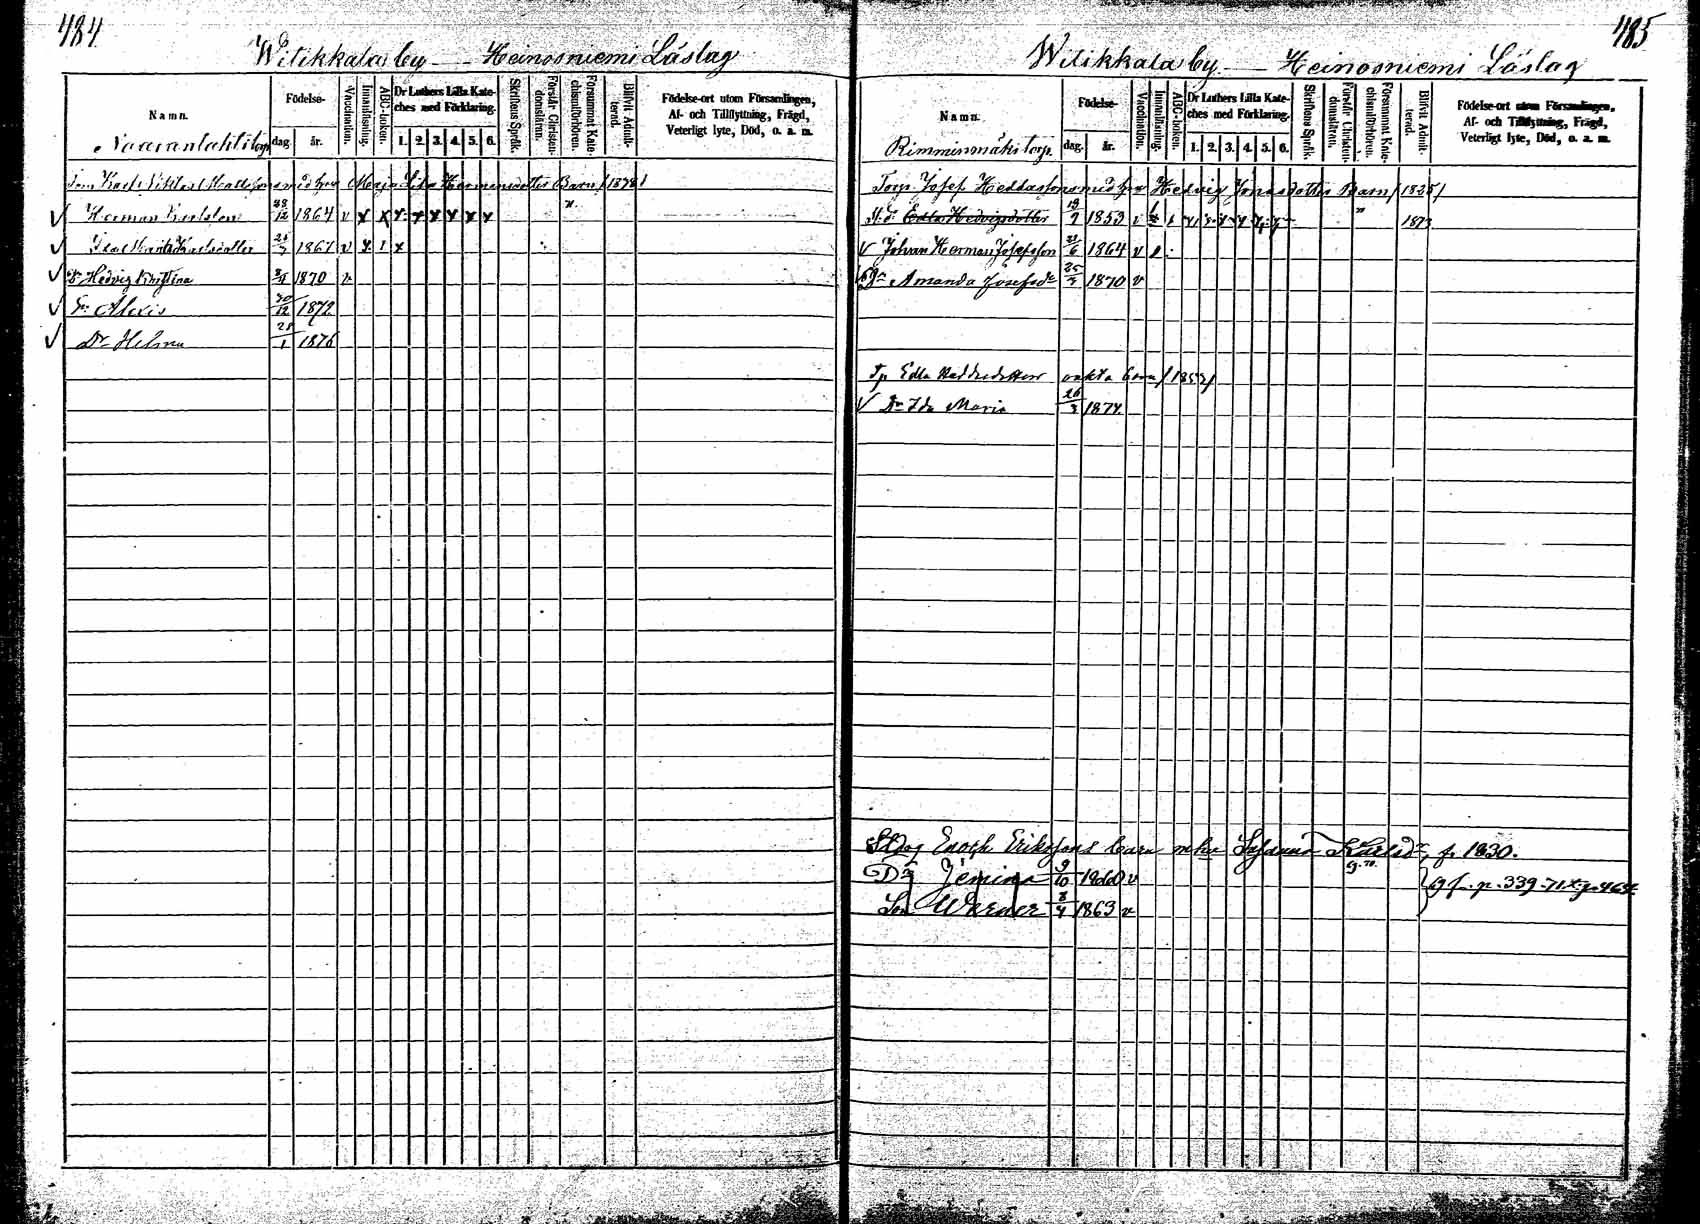 484
Witikkala by — Heinosniemi Läslag
Namn.
Födelse-
dag.
år.
Vaccination.
Innanläsning.
ABC-boken.
Dr Luthers Lilla Kate-
ches med Förklaring.
1. 2. 3. 4. 5. 6.
Skriftens Språk.
Förstår Christen-
domsläran.
Försummat Kate-
chismiförhören.
Blifvit Admit-
terad.
Födelse-ort utom Församlingen,
Af- och Tillflyttning, Frägd,
Veterligt lyte, Död, o. a. m.
Karl Maja Hermansdotter Barn
√ Herman 28/12 1864 v x x x x x x x x
√ 1867 v x 1 x
√ Dr Hedvig Kristina 1870 v
√ Sn Alexis 30/12 1872
√ Dr Helma 28/1 1876
485
Witikkala by. — Heinosniemi Läslag
Namn.
Rimminmäki torp.
Födelse-
dag.
år.
Vaccination.
Innanläsning.
ABC-boken.
Dr Luthers Lilla Kate-
ches med Förklaring.
1. 2. 3. 4. 5. 6.
Skriftens Språk.
Förstår Christen-
domsläran.
Försummat Kate-
chismiförhören.
Blifvit Admit-
terad.
Födelse-ort utom Församlingen,
Af- och Tillflyttning, Frägd,
Veterligt lyte, Död, o. a. m.
Torp. Josef Heddasson med hru Hedvig Jonasdotter Barn /1825/
Edla Hedvigsdotter 1853 v 1873
√ Johan Herman Josefsson 21/6 1864 v
√ Dr Amanda Josefsdr 1870 v
Edla oäkta barn /1853/
√ Dr Ida Maria 26/3 1874
Enoch Eriksons barn Susanna Karlsdr, f. 1830.
Dr Jemina 9/10 1860 v
Son Werner 8/4 1863 v
p. 339